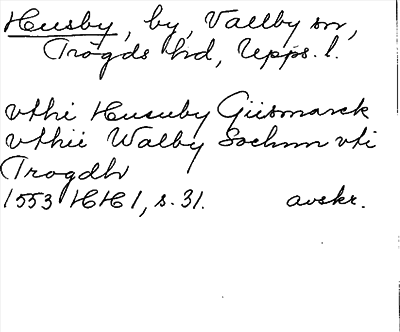 Husby, by, Vallby sn,
Trögds hd, Upps. l.
vthi Husuby Giismarck
vthii Walby Sochnn vti
Trogdh
1553 HH 1, s. 31. avskr.